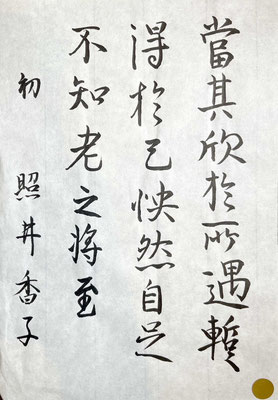 當其欣於所遇蹔
得於己怏然自足
不知老之將至
初 照井香子